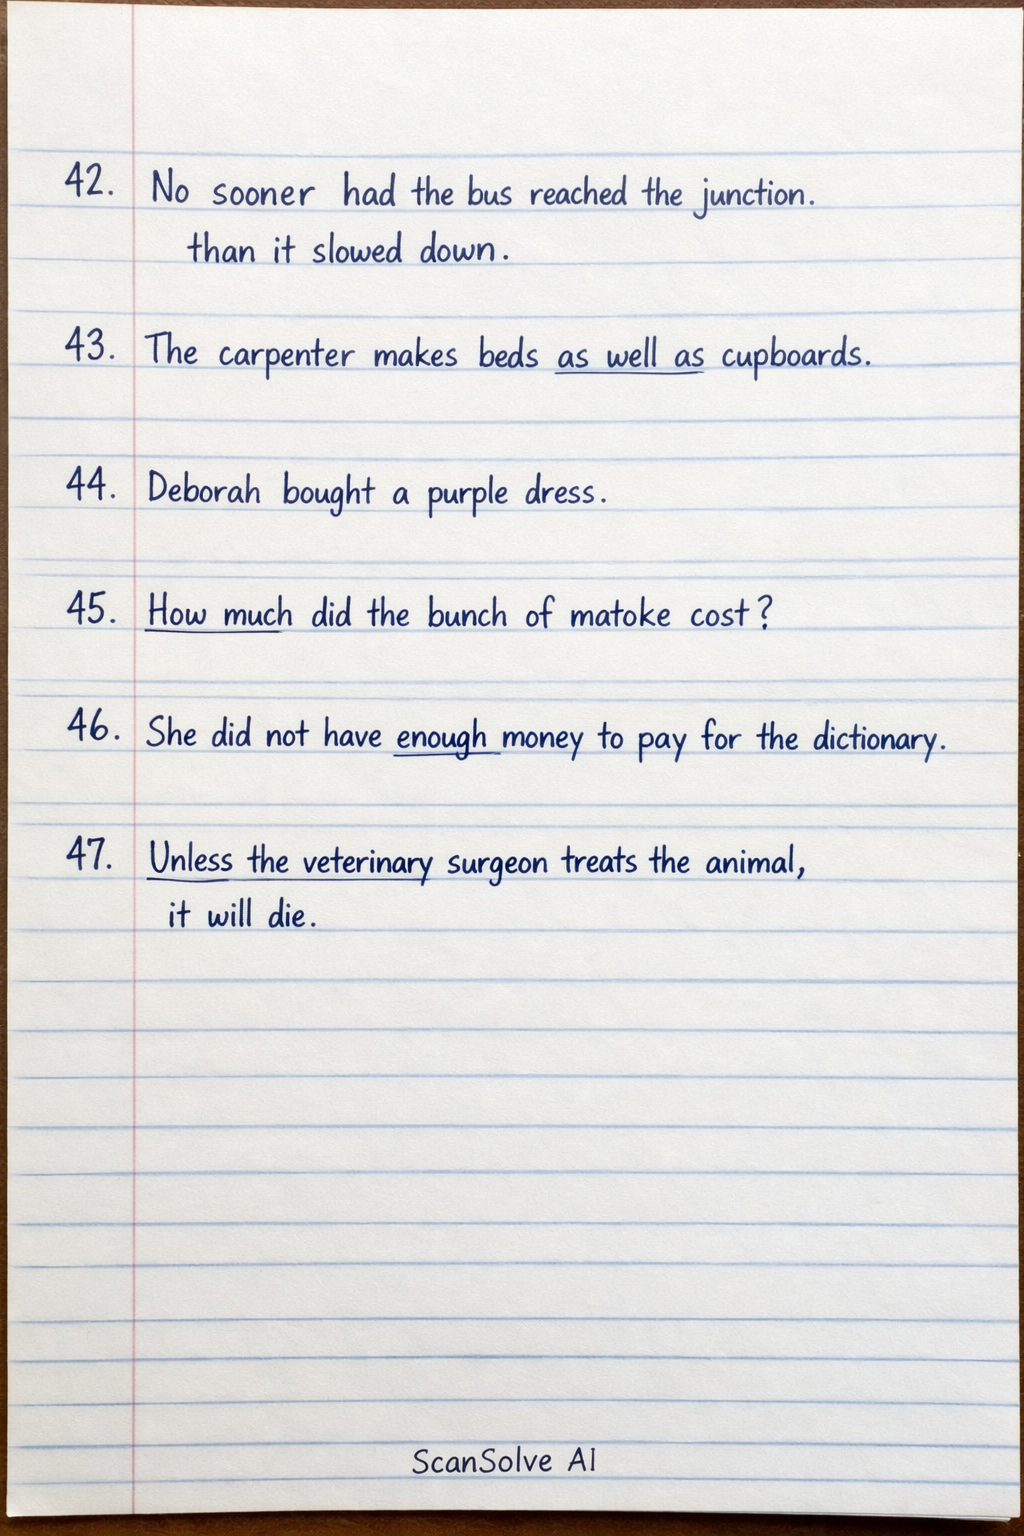 42. No sooner had the bus reached the junction.
than it slowed down.
43. The carpenter makes beds as well as cupboards.
44. Deborah bought a purple dress.
45. How much did the bunch of matoke cost?
46. She did not have enough money to pay for the dictionary.
47. Unless the veterinary surgeon treats the animal,
it will die.
ScanSolve AI